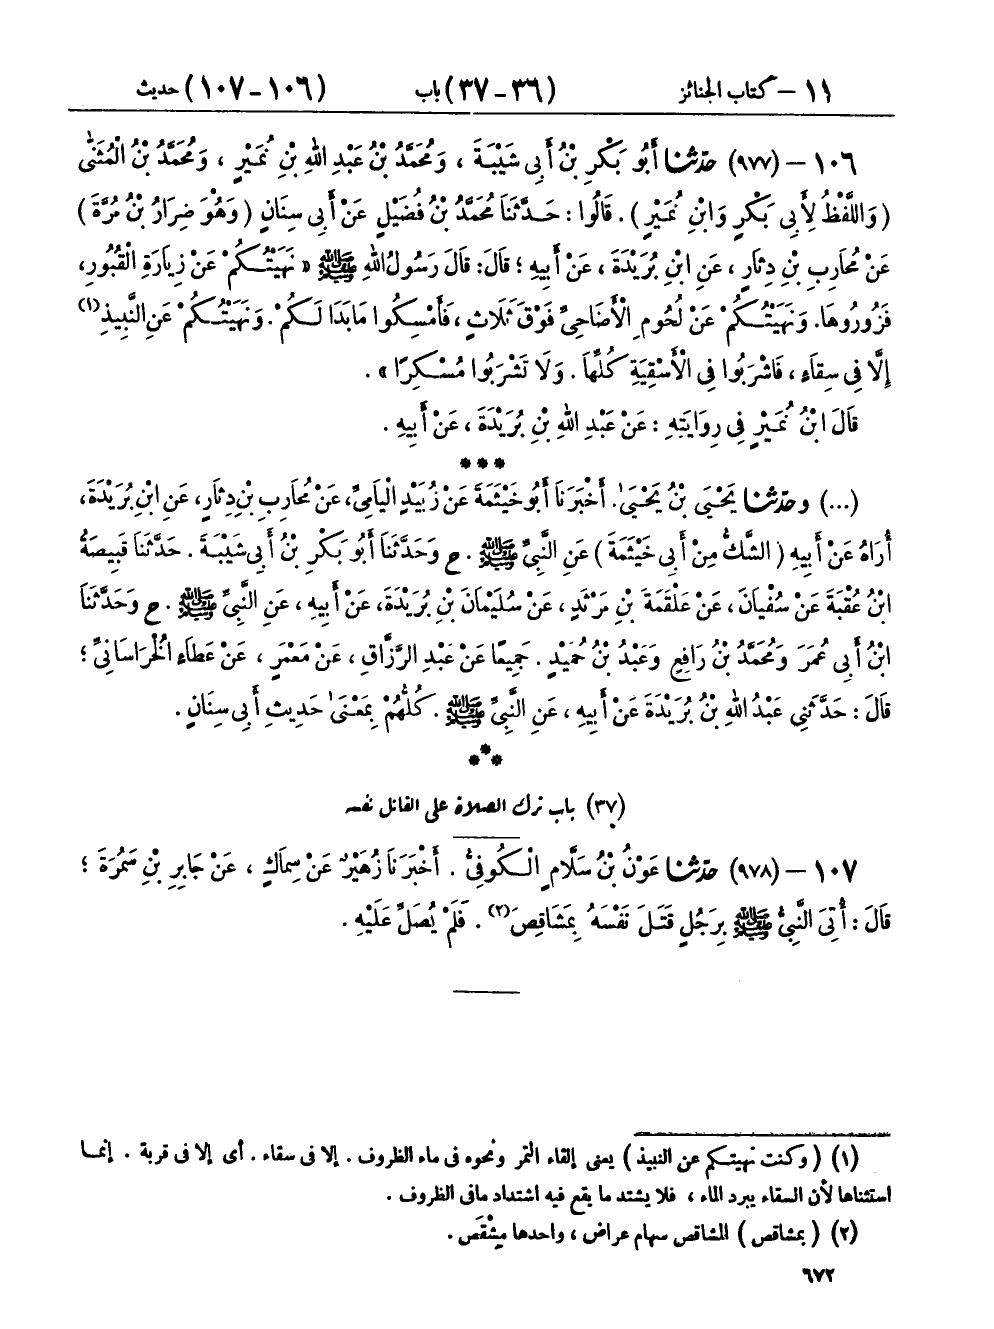 ١١ – كتاب الجنائز (٣٦-٣٧) باب (١٠٦-١٠٧) حديث
١٠٦ – (٩٧٧) حدّثنا أَبُو بَكْرِ بْنُ أَبِي شَيْبَةَ ، وَمُحَمَّدُ بْنُ عَبْدِ اللهِ بْنِ نُمَيْرٍ ، وَمُحَمَّدُ بْنُ الْمُثَنَّى
( وَاللَّفْظُ لِأَبِي بَكْرٍ وَابْنِ نُمَيْرٍ ) . قَالُوا : حَدَّثَنَا مُحَمَّدُ بْنُ فُضَيْلٍ عَنْ أَبِي سِنَانٍ ( وَهُوَ ضِرَارُ بْنُ مُرَّةَ )
عَنْ مُحَارِبِ بْنِ دِثَارٍ ، عَنِ ابْنِ بُرَيْدَةَ ، عَنْ أَبِيهِ ؛ قَالَ : قَالَ رَسُولُ اللهِ ﷺ « نَهَيْتُكُمْ عَنْ زِيَارَةِ الْقُبُورِ،
فَزُورُوهَا. وَنَهَيْتُكُمْ عَنْ لُحُومِ الْأَضَاحِيِّ فَوْقَ ثَلَاثٍ ، فَأَمْسِكُوا مَا بَدَا لَكُمْ. وَنَهَيْتُكُمْ عَنِ النَّبِيذِ(١)
إِلَّا فِي سِقَاءٍ ، فَاشْرَبُوا فِي الْأَسْقِيَةِ كُلِّهَا . وَلَا تَشْرَبُوا مُسْكِرًا » .
قَالَ ابْنُ نُمَيْرٍ فِي رِوَايَتِهِ : عَنْ عَبْدِ اللهِ بْنِ بُرَيْدَةَ ، عَنْ أَبِيهِ .
***
(...) وحدّثنا يَحْيَى بْنُ يَحْيَىٰ. أَخْبَرَنَا أَبُو خَيْثَمَةَ عَنْ زُبَيْدٍ الْيَامِيِّ، عَنْ مُحَارِبِ بْنِ دِثَارٍ، عَنِ ابْنِ بُرَيْدَةَ،
أُرَاهُ عَنْ أَبِيهِ ( الشَّكُّ مِنْ أَبِي خَيْثَمَةَ ) عَنِ النَّبِيِّ ﷺ . ح وَحَدَّثَنَا أَبُو بَكْرِ بْنُ أَبِي شَيْبَةَ . حَدَّثَنَا قَبِيصَةُ
ابْنُ عُقْبَةَ عَنْ سُفْيَانَ ، عَنْ عَلْقَمَةَ بْنِ مَرْثَدٍ ، عَنْ سُلَيْمَانَ بْنِ بُرَيْدَةَ ، عَنْ أَبِيهِ ، عَنِ النَّبِيِّ ﷺ . ح وَحَدَّثَنَا
ابْنُ أَبِي عُمَرَ وَمُحَمَّدُ بْنُ رَافِعٍ وَعَبْدُ بْنُ حُمَيْدٍ . جَمِيعًا عَنْ عَبْدِ الرَّزَّاقِ ، عَنْ مَعْمَرٍ ، عَنْ عَطَاءٍ الْخُرَاسَانِيِّ ؛
قَالَ : حَدَّثَنِي عَبْدُ اللهِ بْنُ بُرَيْدَةَ عَنْ أَبِيهِ ، عَنِ النَّبِيِّ ﷺ . كُلُّهُمْ بِمَعْنَىٰ حَدِيثِ أَبِي سِنَانٍ .
***
(٣٧) باب ترك الصلاة على القاتل نفسه
١٠٧ – (٩٧٨) حدّثنا عَوْنُ بْنُ سَلَّامٍ الْكُوفِيُّ . أَخْبَرَنَا زُهَيْرٌ عَنْ سِمَاكٍ ، عَنْ جَابِرِ بْنِ سَمُرَةَ ؛
قَالَ : أُتِيَ النَّبِيُّ ﷺ بِرَجُلٍ قَتَلَ نَفْسَهُ بِمَشَاقِصَ(٢) . فَلَمْ يُصَلِّ عَلَيْهِ .
(١) ( وكنت نهيتكم عن النبيذ ) يعنى إلقاء التمر ونحوه فى ماء الظروف . إلا فى سقاء . أى إلا فى قربة . إنما
استثناها لأن السقاء يبرد الماء ، فلا يشتد ما يقع فيه اشتداد مافى الظروف .
(٢) ( بمشاقص ) المشاقص سهام عراض ، واحدها مِشْقَص .
٦٧٢